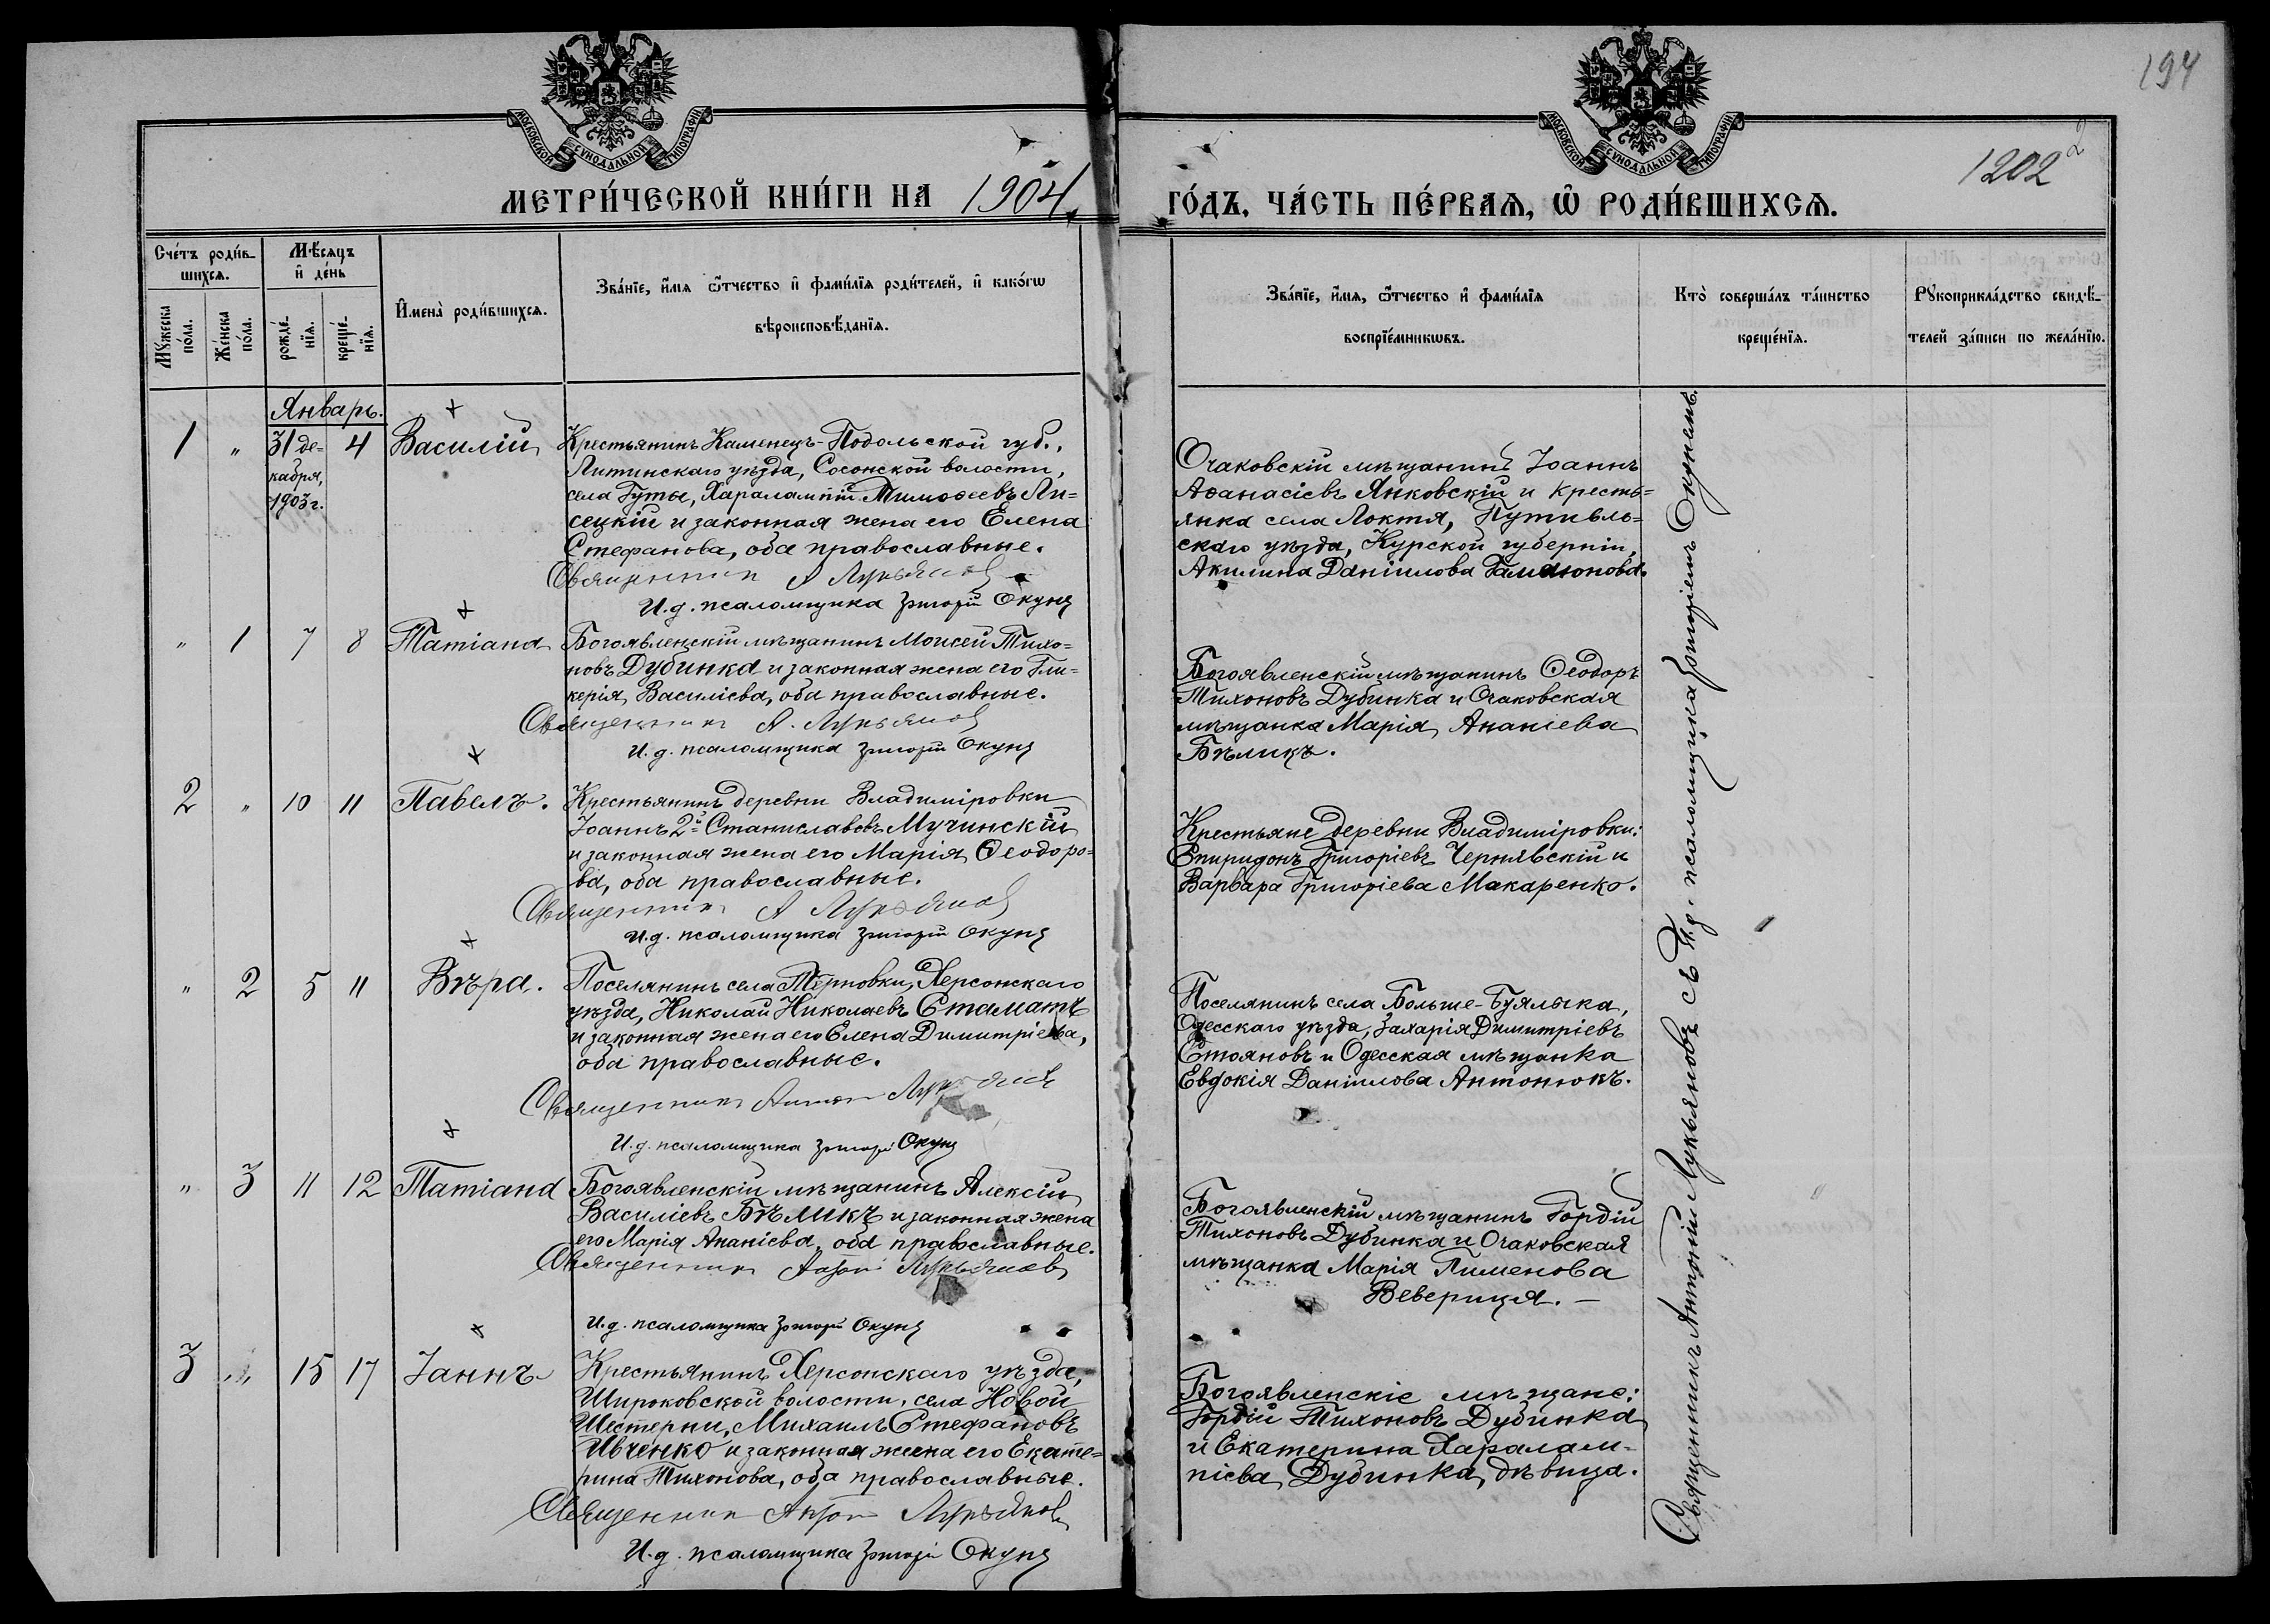 194
1202
2
МОСКОВСКОЙ СѴНОДАЛЬНОЙ ТИПОГРАФІИ
МОСКОВСКОЙ СѴНОДАЛЬНОЙ ТИПОГРАФІИ
МЕТРИ́ЧЕСКОЙ КНИ́ГИ НА 1904
ГО́ДЪ, ЧА́СТЬ ПЕ́РВАѦ, Ѽ РОДИ́ВШИХСѦ.
Сче́тъ роди́в-
шихсѧ.
Мѣ́сѧцъ
и҆ де́нь
Мꙋ́жеска
по́ла.
Же́нска
по́ла.
рожде́-
нїѧ.
креще́-
нїѧ.
И҆мена̀ роди́вшихсѧ.
Зва́нїе, и҆́мѧ ѻ҆́тчество и҆ фами́лїѧ роди́телей, и҆ како́гѡ
вѣроисповѣ́данїѧ.
Зва́нїе, и҆́мѧ, ѻ҆́тчество и҆ фами́лїѧ
воспрїе́мникѡвъ.
Кто̀ соверша́лъ та́инство
креще́нїѧ.
Рꙋкоприкла́дство свидѣ́-
телей за́писи по жела́нїю.
Январь.
1 " 31 де-
кабря,
1903 г.
4 Василій
Крестьянинъ Каменецъ-Подольской губ.,
Литинскаго уѣзда, Сосонской волости,
села Гуты, Харалампій Тимоѳеевъ Ли-
сецкій и законная жена его Елена
Стефанова, оба православные.
Священникъ А Лукьянов
И.д. псаломщика Григорій Окунь
Очаковскій мѣщанинъ Іоаннъ
Аѳанасіевъ Янковскій и кресть-
янка села Локтя, Путивль-
скаго уѣзда, Курской губерніи,
Акилина Даніилова Гамаюнова.
" 1 7 8 Татіана
Богоявленскій мѣщанинъ Моисей Тихо-
новъ Дубинка и законная жена его Гли-
керія Василіева, оба православные.
Священникъ А. Лукьянов
И.д. псаломщика Григорій Окунь
Богоявленскій мѣщанинъ Ѳеодоръ
Тихоновъ Дубинка и Очаковская
мѣщанка Марія Ананіева
Бѣликъ.
2 " 10 11 Павелъ.
Крестьянинъ деревни Владиміровки
Іоаннъ 2й Станиславовъ Мучинскій
и законная жена его Марія Ѳеодоро-
ва, оба православные.
Священникъ А Лукьянов
И.д. псаломщика Григорій Окунь
Крестьяне деревни Владиміровки:
Спиридонъ Григоріевъ Чернявскій и
Варвара Григоріева Макаренко.
" 2 5 11 Вѣра.
Поселянинъ села Терновки, Херсонскаго
уѣзда, Николай Николаевъ Стаматъ
и законная жена его Елена Димитріева,
оба православные.
Священникъ Антон
И.д. псаломщика Григорій Окунь
Поселянинъ села Больше-Буялыка,
Одесскаго уѣзда, Захарія Димитріевъ
Стояновъ и Одесская мѣщанка
Евдокія Даніилова Антонюкъ.
" 3 11 12 Татіана
Богоявленскій мѣщанинъ Алексій
Василіевъ Бѣликъ и законная жена
его Марія Ананіева, оба православные.
Священникъ Антон Лукьянов
И.д. псаломщика Григорій Окунь
Богоявленскій мѣщанинъ Гордій
Тихоновъ Дубинка и Очаковская
мѣщанка Марія Пименова
Веверица. —
3 " 15 17 Іаннъ
Крестьянинъ Херсонскаго уѣзда,
Широковской волости, села Новой
Шестерни, Михаилъ Стефановъ
Ивченко и законная жена его Екате-
рина Тихонова, оба православные.
Священник Антон Лукьянов
И.д. псаломщика Григорій Окунь
Богоявленскіе мѣщане:
Гордій Тихоновъ Дубинка
и Екатерина Харалам-
піева Дубинка, дѣвица.
Священникъ Антоній Лукьяновъ съ И.д. псаломщика Григоріемъ Окунемъ.